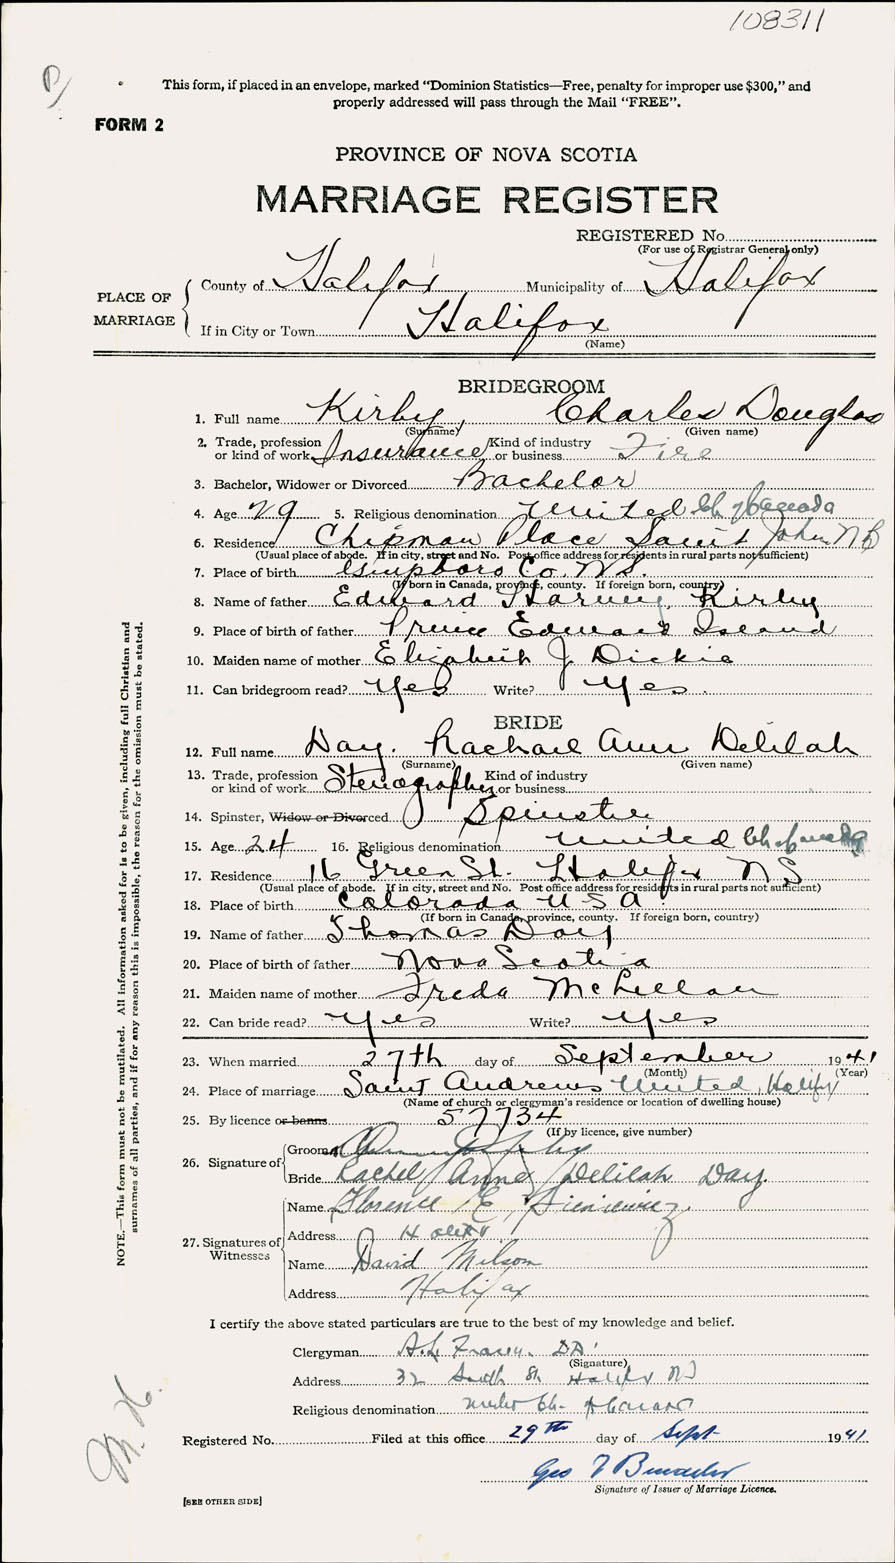 108311
This form, if placed in an envelope, marked "Dominion Statistics—Free, penalty for improper use $300," and
properly addressed will pass through the Mail "FREE".
FORM 2
PROVINCE OF NOVA SCOTIA
MARRIAGE REGISTER
REGISTERED No.
(For use of Registrar General only)
PLACE OF MARRIAGE
County of Halifax Municipality of Halifax
If in City or Town Halifax
(Name)
BRIDEGROOM
1. Full name Kirby, Charles Douglas
(Surname) (Given name)
2. Trade, profession or kind of work Insurance Kind of industry or business Fire
3. Bachelor, Widower or Divorced Bachelor
4. Age 29 5. Religious denomination United Ch of Canada
6. Residence Chipman Place Saint John N B
(Usual place of abode. If in city, street and No. Post office address for residents in rural parts not sufficient)
7. Place of birth Co NS
(If born in Canada, province, county. If foreign born, country)
8. Name of father Edward Harvey Kirby
9. Place of birth of father Prince Edward Island
10. Maiden name of mother Elizabeth J Dickie
11. Can bridegroom read? Yes Write? Yes.
BRIDE
12. Full name Day. Rachael Ann Delilah
(Surname) (Given name)
13. Trade, profession or kind of work Stenographer Kind of industry or business
14. Spinster, Widow or Divorced. Spinster
15. Age 24 16. Religious denomination United Ch of Canada
17. Residence 16 Green St. Halifax N S
(Usual place of abode. If in city, street and No. Post office address for residents in rural parts not sufficient)
18. Place of birth Colorado U S A
(If born in Canada, province, county. If foreign born, country)
19. Name of father Thomas Day
20. Place of birth of father Nova Scotia
21. Maiden name of mother Freda McLellan
22. Can bride read? Yes Write? Yes
23. When married 27th day of September 1941
(Month) (Year)
24. Place of marriage Saint Andrews United, Halifax
(Name of church or clergyman's residence or location of dwelling house)
25. By licence or banns 57734
(If by licence, give number)
26. Signature of Groom
Bride Rachel Anne Delilah Day.
27. Signatures of Witnesses
Name Florence E.
Address Halifax
Name David Wilson
Address Halifax
I certify the above stated particulars are true to the best of my knowledge and belief.
Clergyman A.L. Fraser. DD
(Signature)
Address 32 South St Halifax NS
Religious denomination United Ch. of Canada
Registered No. Filed at this office 29th day of Sept 1941
Geo
Signature of Issuer of Marriage Licence.
[SEE OTHER SIDE]
NOTE.—This form must not be mutilated. All information asked for is to be given, including full Christian and
surnames of all parties, and if for any reason this is impossible, the reason for the omission must be stated.
M. H.